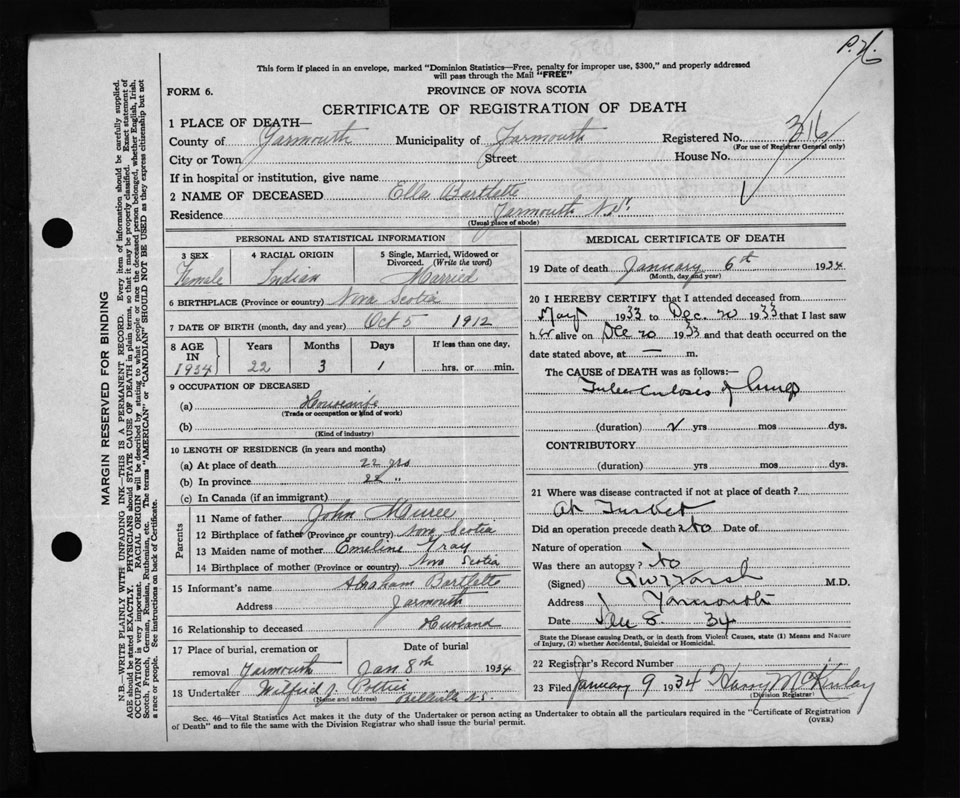 P. H.
This form if placed in an envelope, marked "Dominion Statistics—Free, penalty for improper use, $300," and properly addressed
will pass through the Mail "FREE"
FORM 6.
PROVINCE OF NOVA SCOTIA
CERTIFICATE OF REGISTRATION OF DEATH
1 PLACE OF DEATH—
County of Yarmouth Municipality of Yarmouth Registered No. 316
(For use of Registrar General only)
City or Town Street House No.
If in hospital or institution, give name
2 NAME OF DECEASED Ella Bartlette
Residence Yarmouth N.S.
(Usual place of abode)
PERSONAL AND STATISTICAL INFORMATION
3 SEX 4 RACIAL ORIGIN 5 Single, Married, Widowed or
Divorced. (Write the word)
Female Indian Married
6 BIRTHPLACE (Province or country) Nova Scotia
7 DATE OF BIRTH (month, day and year) Oct 5 1912
8 AGE Years Months Days If less than one day,
IN
1934 22 3 1 hrs. or min.
9 OCCUPATION OF DECEASED
(a) Housewife
(Trade or occupation or kind of work)
(b)
(Kind of industry)
10 LENGTH OF RESIDENCE (in years and months)
(a) At place of death 22 yrs
(b) In province 22 "
(c) In Canada (if an immigrant)
Parents
11 Name of father John
12 Birthplace of father (Province or country) Nova Scotia
13 Maiden name of mother Emeline Gray
14 Birthplace of mother (Province or country) Nova Scotia
15 Informant's name Abraham Bartlette
Address Yarmouth
16 Relationship to deceased Husband
17 Place of burial, cremation or Date of burial
removal Yarmouth Jan 8th 1934
18 Undertaker Wilfred J.
(Name and address) N.S.
MEDICAL CERTIFICATE OF DEATH
19 Date of death January 6th 1934
(Month, day and year)
20 I HEREBY CERTIFY that I attended deceased from
May 1933 to Dec. 20 1933 that I last saw
her alive on Dec 20 1933 and that death occurred on
date stated above, at — m.
The CAUSE of DEATH was as follows:—
Tuberculosis of lungs
(duration) yrs mos dys.
CONTRIBUTORY
(duration) yrs mos dys.
21 Where was disease contracted if not at place of death?
At Tusket
Did an operation precede death no Date of
Nature of operation
Was there an autopsy? no
(Signed) M.D.
Address Yarmouth
Date 8. 34
State the Disease causing Death, or in death from Violent Causes, state (1) Means and Nature
of Injury, (2) whether Accidental, Suicidal or Homicidal.
22 Registrar's Record Number
23 Filed January 9 1934 Harry McKinlay
(Division Registrar)
Sec. 46—Vital Statistics Act makes it the duty of the Undertaker or person acting as Undertaker to obtain all the particulars required in the "Certificate of Registration
of Death" and to file the same with the Division Registrar who shall issue the burial permit. (OVER)
MARGIN RESERVED FOR BINDING
N.B.—WRITE PLAINLY WITH UNFADING INK—THIS IS A PERMANENT RECORD. Every item of information should be carefully supplied.
AGE should be stated EXACTLY. PHYSICIANS should STATE CAUSE OF DEATH in plain terms, so that it may be properly classified. Exact statement of
OCCUPATION is very important. RACIAL ORIGIN will be described by stating to what people or race the deceased person belonged, whether English, Irish,
Scotch, French, German, Russian, Ruthenian, etc. The terms "AMERICAN" or "CANADIAN" SHOULD NOT BE USED as they express citizenship but not
a race or people. See instructions on back of Certificate.